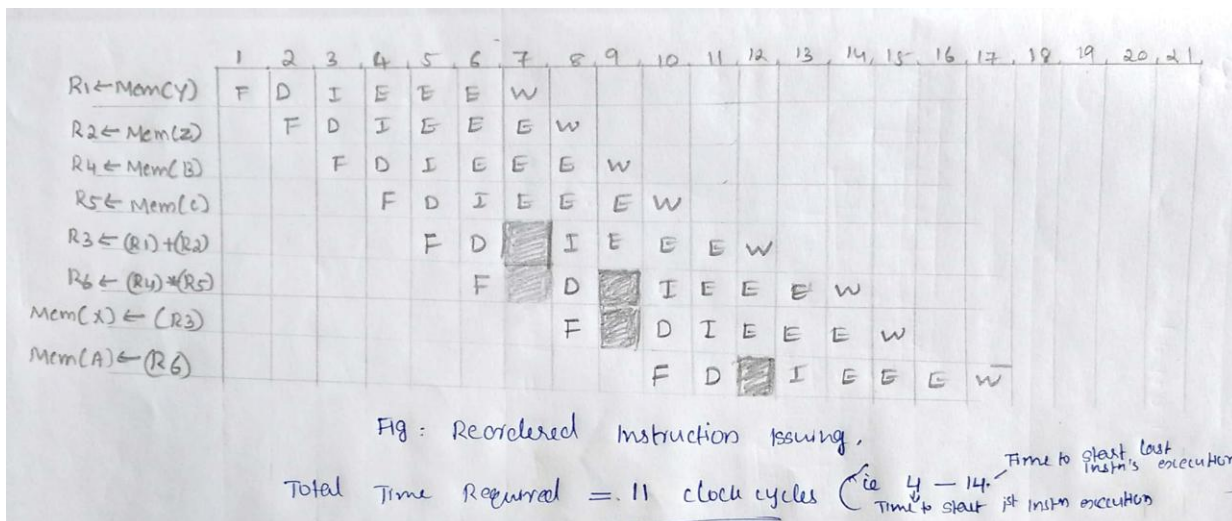 1 2 3 4 5 6 7 8 9 10 11 12 13 14 15 16 17 18 19 20 21
R1←Mem(Y) F D I E E E W
R2←Mem(Z) F D I E E E W
R4←Mem(B) F D I E E E W
R5←Mem(C) F D I E E E W
R3←(R1)+(R2) F D I E E E W
R6←(R4)*(R5) F D I E E E W
Mem(X)←(R3) F D I E E E W
Mem(A)←(R6) F D I E E E W
Fig: Reordered Instruction Issuing.
Total Time Required = 11 clock cycles (ie 4 – 14.
Time to start last instn's execution
Time to start 1st instn execution